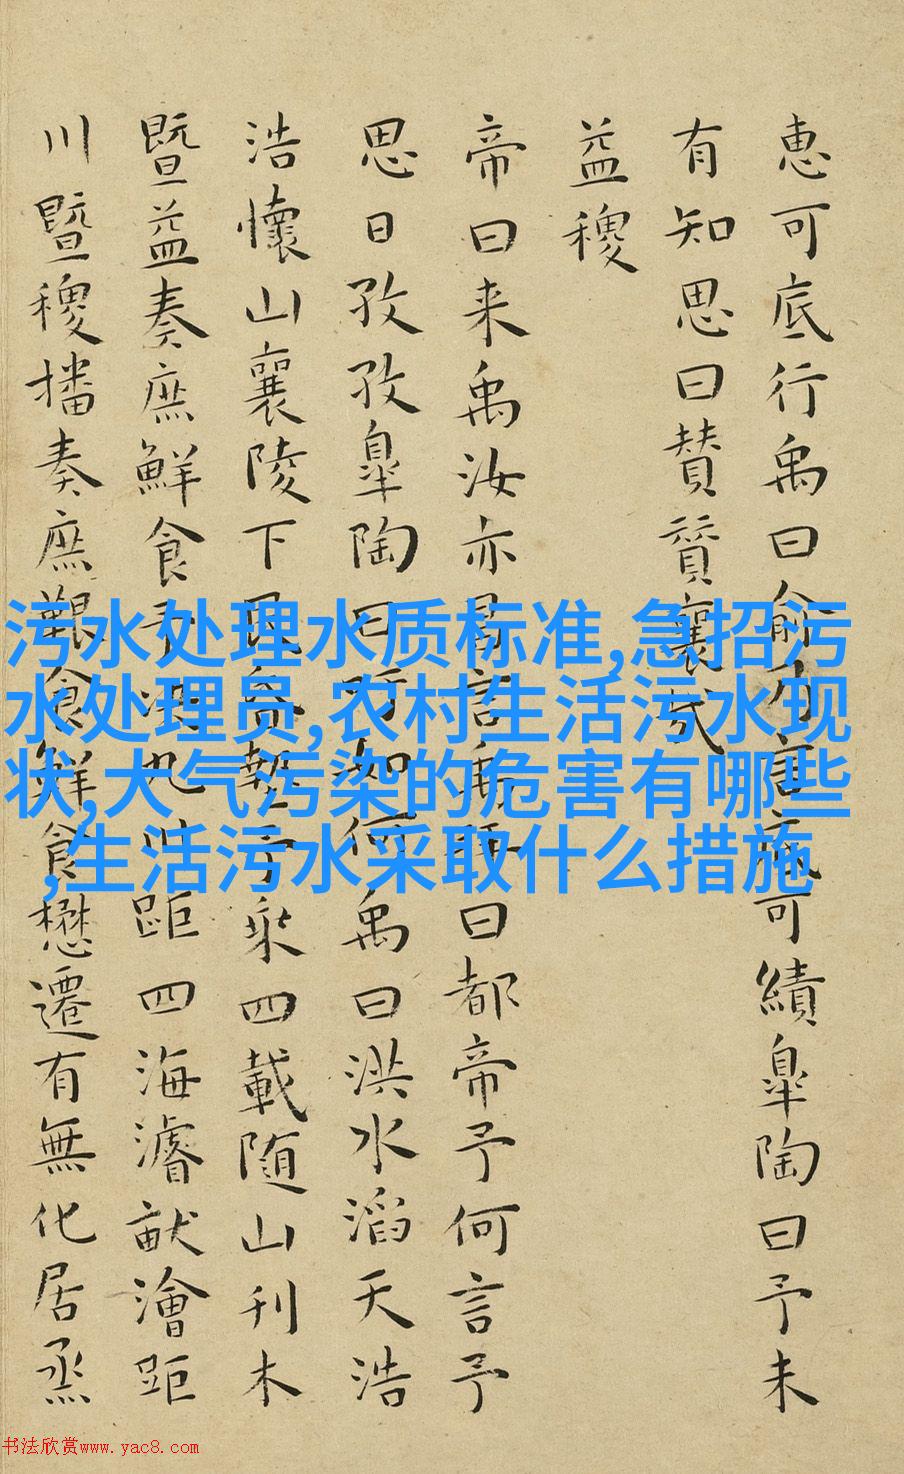 惠可底行禹曰俞乃言底可績皐陶曰予未
有知思曰賛賛襄哉
益稷
帝曰来禹汝亦昌言禹拜曰都帝予何言予
思日孜孜皐陶曰吁如何禹曰洪水滔天浩
浩懷山襄陵下民昏墊予乗四載随山刊木
暨益奏庶鮮食予决九川距四海濬畎澮距
川暨稷播奏庶艱食鮮食懋遷有無化居烝
污水处理水质标准,急招污
水处理员,农村生活污水现
状,大气污染的危害有哪些
,生活污水采取什么措施
书法欣赏www.yac8.com